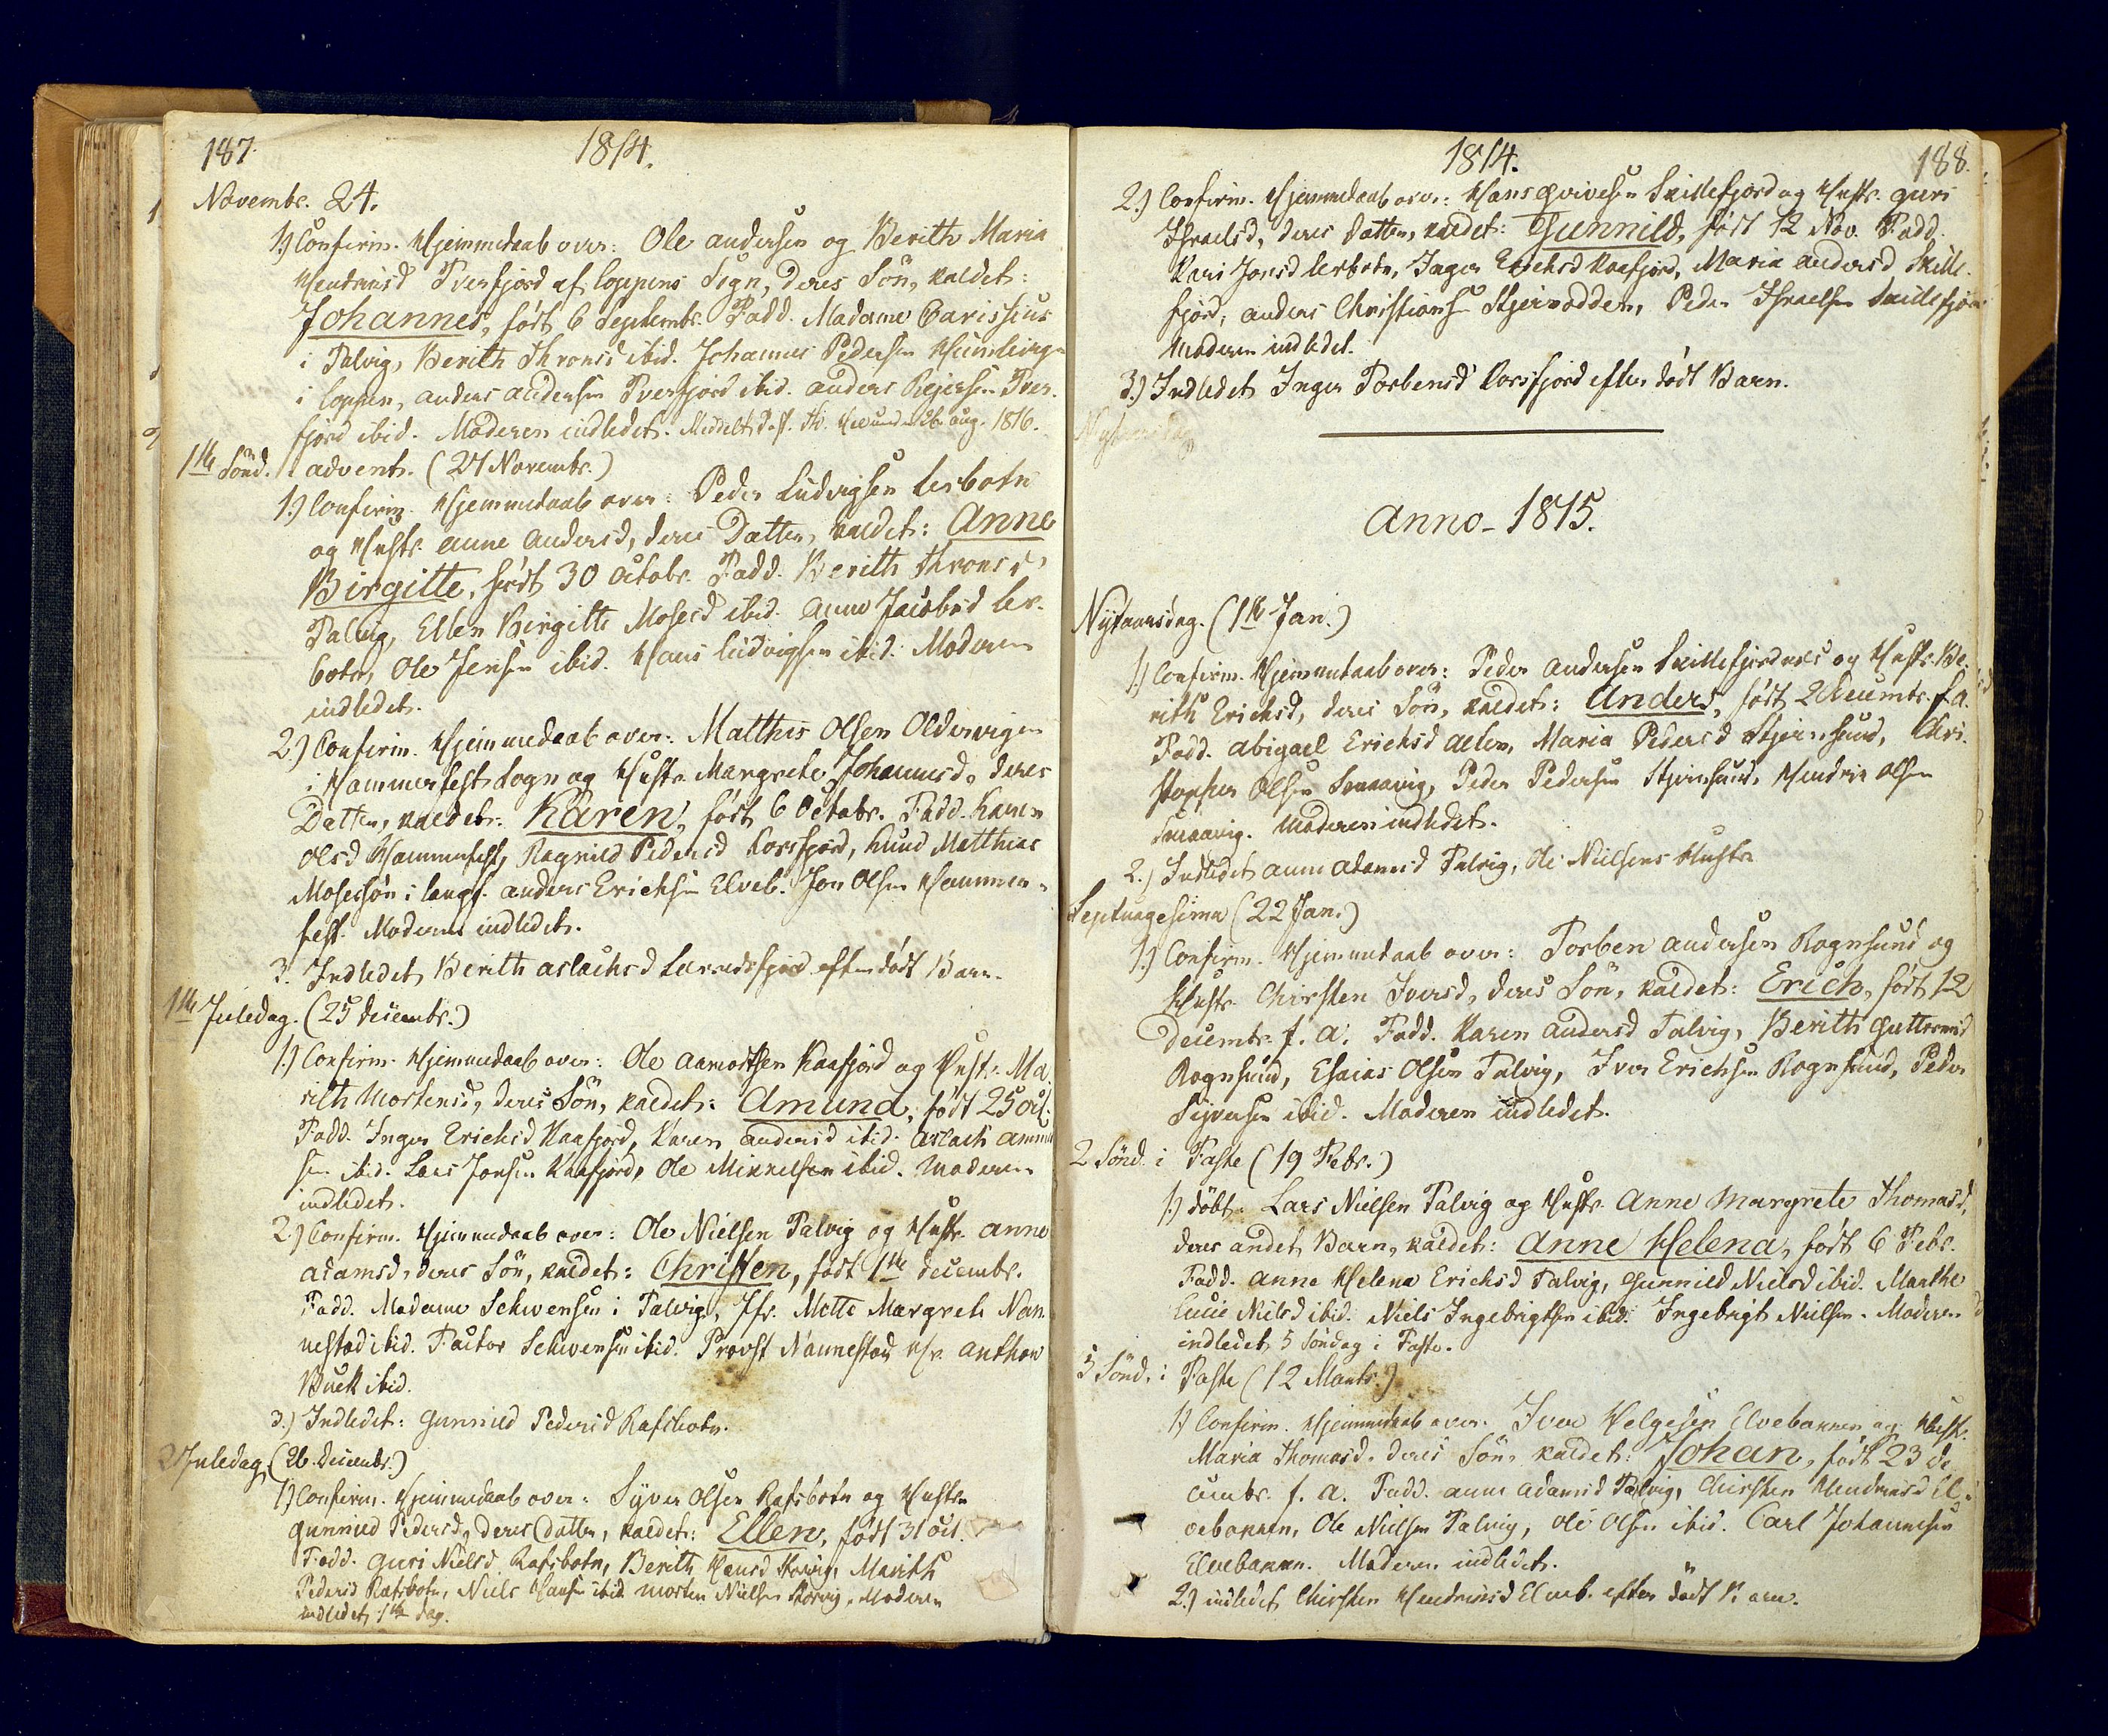 187.
1814.
Novembr. 24.
1.) Confirm. Hjemmedaab over: Ole Andersen og Berith Maria
Hendrichsd Tverfjord af Loppens Sogn, deres Sön, kaldet:
Johannes, födt 6 Septembr. Fadd. Madame
i Talvig, Berith Thronsd ibid. Johannes Pedersen
i Loppen, Anders Andersen Tverfjord ibid. Anders Rejersen Tver-
fjord ibid. Moderen indledet. Aug. 1816.
1ste Sönd. i Advent. (27 Novembr.)
1.) Confirm. Hjemmedaab over: Peder Ludvigsen Lerbotn
og Hustr. Anne Andersd, deres Datter, kaldet: Anne
Birgitte, födt 30 Octobr. Fadd. Berith Thronsd,
Talvig, Ellen Birgitte Mosesd ibid. Anne Jacobsd Ler-
botn, Ole Jensen ibid. Hans Ludvigsen ibid. Moderen
indledet.
2.) Confirm. Hjemmedaab over: Matthis Olsen Oldervigen
i Hammerfest Sogn og Hustr. Margrete Johannesd, deres
Datter, kaldet: Karen, födt 6 Octobr. Fadd. Karen
Olsd Hammerfest, Ragnild Pedersd Korsfjord, Knud Matthias
Mosessön i Langf. Anders Erichsen Elveb. Jon Olsen Hammer-
fest. Moderen indledet.
3. Indledet Berith Aslachsd efter födt Barn.
1ste Juledag. (25 Decembr.)
1.) Confirm. Hjemmedaab over: Ole Kaafjord og Hustr. Ma-
rith Mortensd, deres Sön, kaldet: Amund, födt 25 Oct.
Fadd. Inger Erichsd Kaafjord, Karen Andersd ibid. Aslach
sen ibid. Lars Jonsen Kaafjord, Ole Mikkelsen ibid. Moderen
indledet.
2.) Confirm. Hjemmedaab over: Ole Nielsen Talvig og Hustr. Anne
Adamsd, deres Sön, kaldet: Christen, födt 1ste Decembr.
Fadd. Madame Schwensen i Talvig, Jfr. Mette Margrete Nan-
nestad ibid. Factor Schwensen ibid. Provst Nannestad Hr. Anthon
Buck ibid.
3.) Indledet: Gunnild Pedersd Rafsbotn.
2 Juledag (26 Decembr.)
1.) Confirm. Hjemmedaab over: Syver Olsen Rafsbotn og Hustr.
Gunnild Pedersd, deres Datter, kaldet: Ellen, födt 31 Oct.
Fadd. Guri Nielsd Rafsbotn, Berith Hansd Marith
Pedersd Rafsbotn, Niels Hansen ibid. Morten Nielsen Moderen
indledet 1ste Dag.
1814.
188.
2.) Confirm. Hjemmedaab over: Hans Skillefjord og Hustr. Guri
Israelsd, deres Datter, kaldet: Gunnild, födt 12 Nov. Fadd.
Kari Jonsd Lerbotn, Inger Erichsd Kaafjord, Maria Andersd Skille-
fjord, Anders Christiansen Peder Israelsen Skillefjord
Moderen indledet.
3.) Indledet Inger Torbensd Korsfjord efter födt Barn.
Nytaarsdag
Anno - 1815.
Nytaarsdag. (1ste Jan.)
1.) Confirm. Hjemmedaab over: Peder Andersen og Hustr. Be-
rith Erichsd, deres Sön, kaldet: Anders, födt 2 Decembr. f. a.
Fadd. Abigael Erichsd Alten, Maria Pedersd Stjernsund, Chri-
stopher Olsen Smaavig, Peder Pedersen Stjernsund, Hendrik Olsen
Smaavig. Moderen indledet.
2.) Indledet Anne Adamsd Talvig, Ole Nielsens Hustr.
Septuagesima (22 Jan.)
1.) Confirm. Hjemmedaab over: Torben Andersen Rognsund og
Hustr. Chirsten Iversd, deres Sön, kaldet: Erich, födt 12
Decembr. f. a. Fadd. Karen Andersd Talvig, Berith Guttormsd
Rognsund, Esaias Olsen Talvig, Iver Erichsen Rognsund, Peder
Syversen ibid. Moderen indledet.
2 Sönd. i Faste (19 Febr.)
1.) Döbt: Lars Nielsen Talvig og Hustr. Anne Margrete Thomasd,
deres andet Barn, kaldet: Anne Helena, födt 6 Febr.
Fadd. Anne Helena Erichsd Talvig, Gunnild Nielsd ibid. Marthe
Lucie Nielsd ibid. Niels Ingebrigtsen ibid. Ingebrigt Nielsen. Moderen
indledet 5 Söndag i Faste.
5 Sönd. i Faste (12 Marts.)
1.) Confirm. Hjemmedaab over: Iver Helgesen Elvebakken og Hustr.
Maria Thomasd, deres Sön, kaldet: Johan, födt 23 De-
cembr. f. a. Fadd. Anne Adamsd Talvig, Chirsten Hendrichsd El-
vebakken, Ole Nielsen Talvig, Ole Olsen ibid. Carl Johannesen
Elvebakken. Moderen indledet.
2.) indledet Chirsten Hendrichsd Elveb. efter dödt Barn.